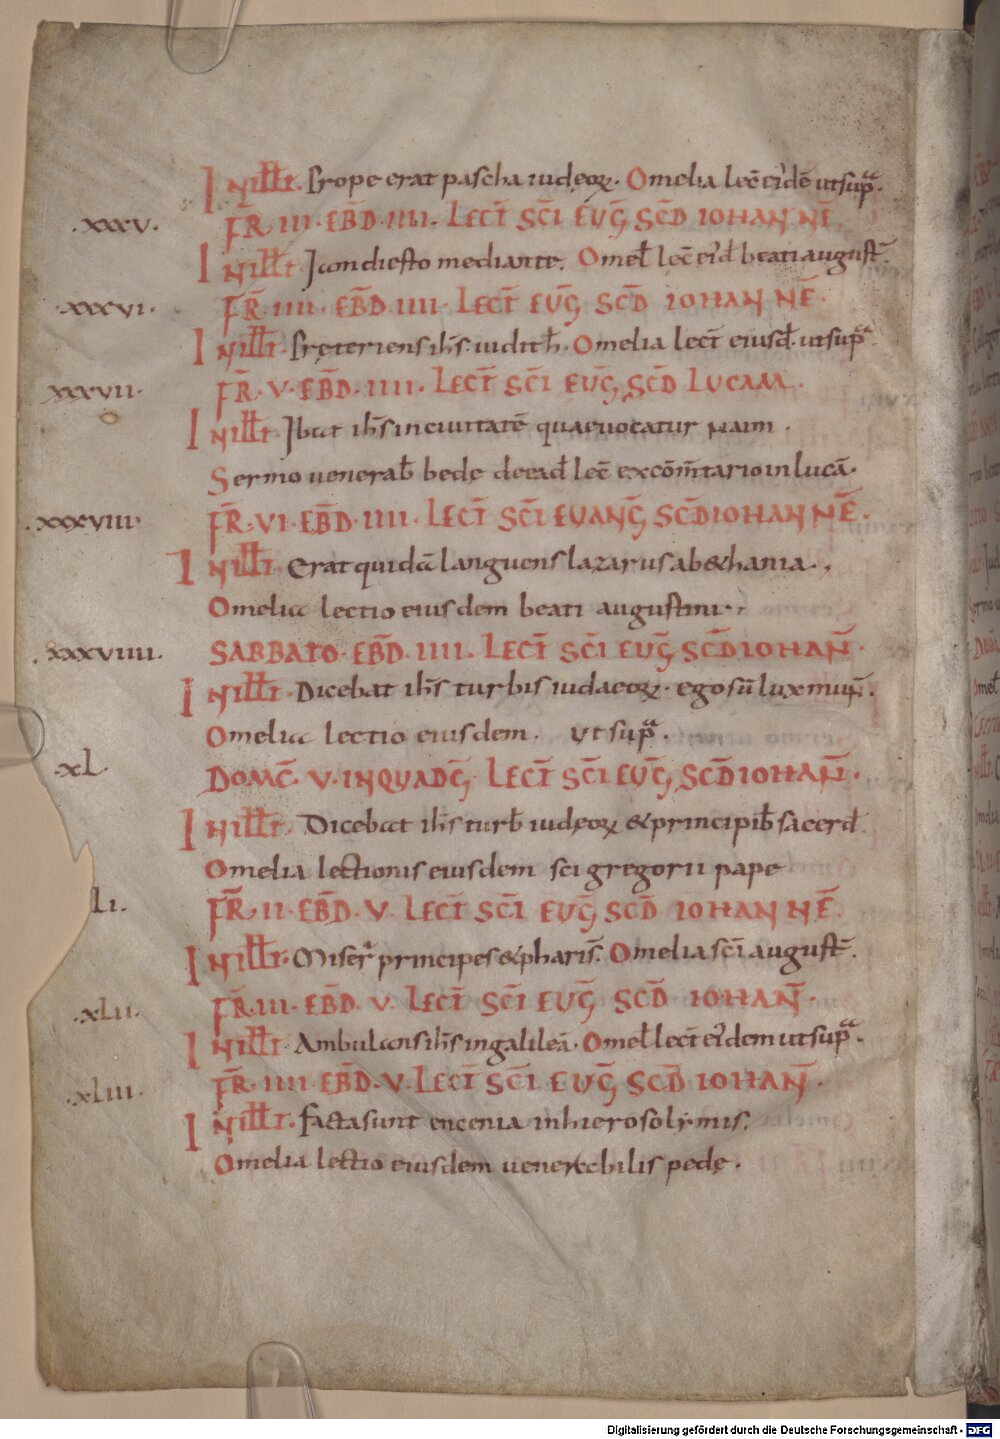 IN ILLT. Prope erat pascha iudęoꝝ. Omelia lec̄ eiꝰdē ut sup̄ᵃ.
.xxxv. FR̄ III. EB̄D. IIII. LECT̄ SC̄I EUḠ SC̄D IOHANNĒ
IN ILLT. Jam die festo mediante. Omel̄ lec̄ eiꝰd̄ beati augusт̄.
.xxxvi. FR̄. IIII. EB̄D. IIII. LECT̄ EUḠ SC̄D IOHANNĒ.
IN ILLT. Pręteriens ih̄s. uidit h̄. Omelia lect̄ eiusd̄. ut sup̄ᵃ
.xxxvii. FR̄. V. EB̄D. IIII. LECT̄ SC̄I EUḠ SC̄D LUCAM.
IN ILLT. Ibat ih̄s in ciuitatē quae uocatur naim.
Sermo uenerab̄ bedę de ead̄ lec̄ ex cōm̄tario in lucā.
.xxxviii. FR̄. VI. EB̄D. IIII. LECT̄ SC̄I EUANḠ SC̄D IOHANNĒ.
IN ILLT. Erat quidā languens lazarus a bethania.,
Omelia lectio eiusdem beati augustini.,
.xxxviiii. SABBATO. EB̄D. IIII. LECT̄ SC̄I EUḠ SC̄D IOHAN̄.
IN ILLT. Dicebat ih̄s turbis iudaeoꝝ. ego sū lux mun̄.
Omelia lectio eiusdem. ut sup̄ᵃ.
.xl. DOMC̄. V. IN QUADḠ. LECT̄ SC̄I EUḠ SC̄D IOHAN̄.
IN ILLT. Dicebat ih̄s turb̄ iudęoꝝ & principib̄ sacerd̄.
Omelia lectionis eiusdem sc̄i gregorii pape
Li. FR̄. II. EB̄D. V. LECT̄ SC̄I EUḠ SC̄D IOHANNĒ.
IN ILLT. Miserꝰ principes & pharis̄. Omelia sc̄i augusт̄.
.xLii. FR̄. III. EB̄D. V. LECT̄ SC̄I EUḠ SC̄D IOHAN̄.
IN ILLT. Ambulans ih̄s in galileā. Omel̄ lect̄ eiꝰdem ut sup̄ᵃ.
.xLiii. FR̄. IIII. EB̄D. V. LECT̄ SC̄I EUḠ SC̄D IOHAN̄.
IN ILLT. facta sunt encenia in hierosolymis.
Omelia lectio eiusdem uenerabilis pedę.
Digitalisierung gefördert durch die Deutsche Forschungsgemeinschaft - DFG